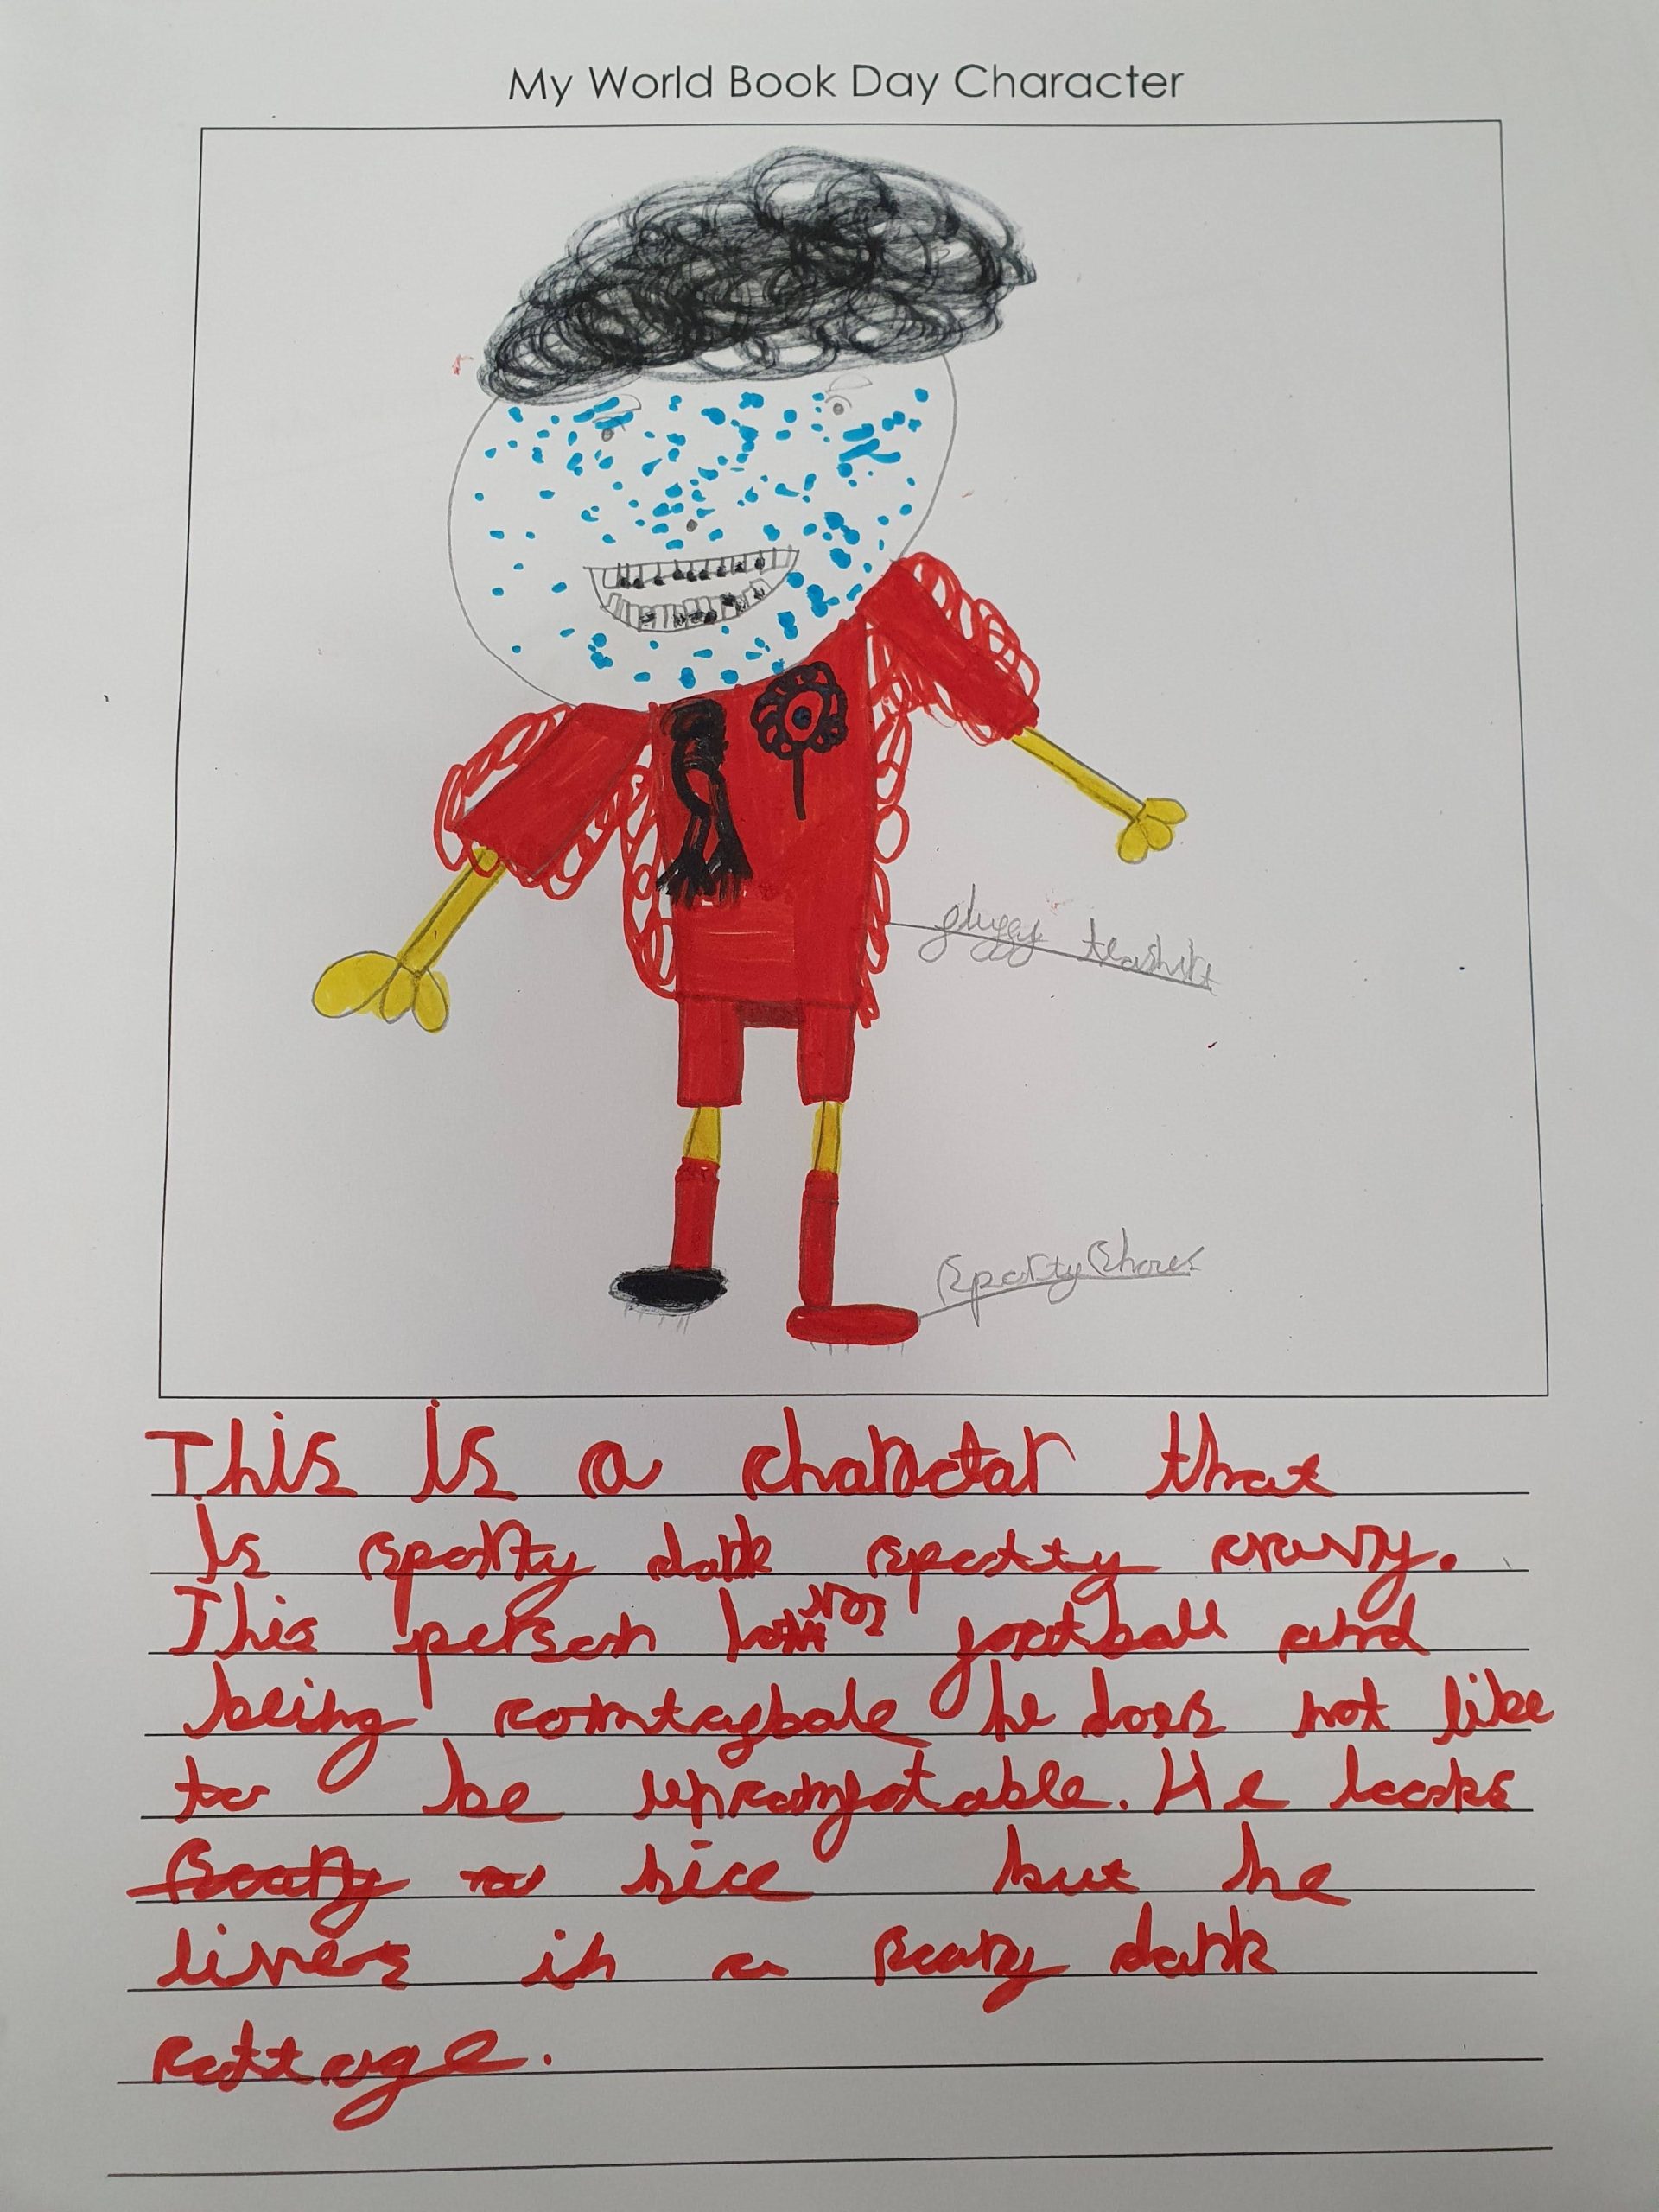 My World Book Day Character
teashirt
Sporty Shoes
This is a charactar that
is sporty dark spotty
This person loves football and
being he does not like
to be uncomfotable. He looks
nice but he
lives in a scary dark
cottage.